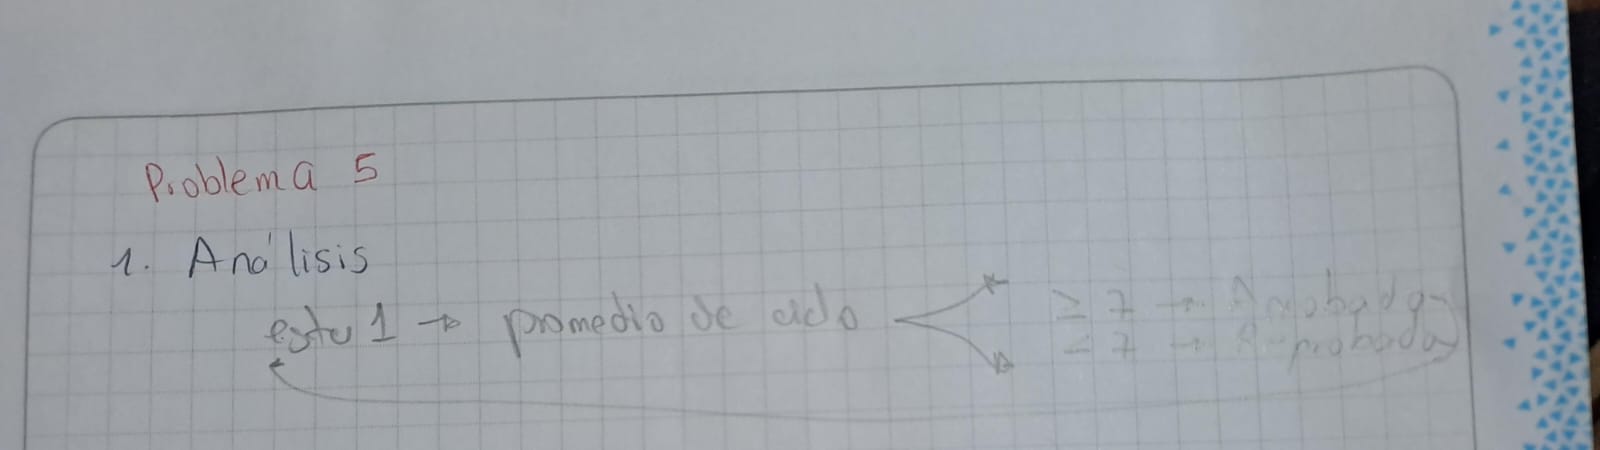 Problema 5
1. Análisis
estu 1 → promedio de ciclo
≥ 7 → Aprobado
< 7 → Reprobado